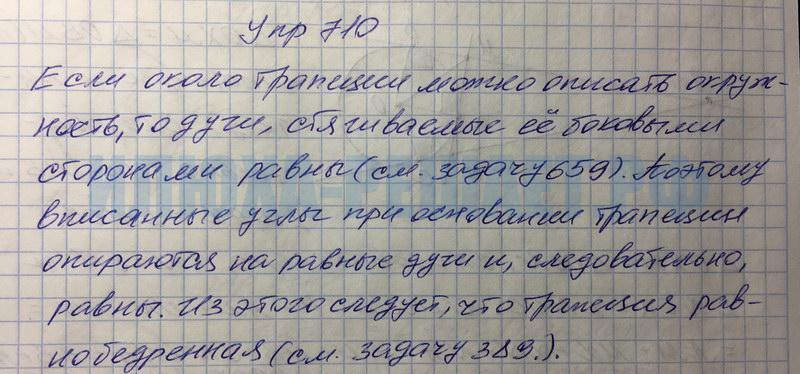 Упр 710
Если около трапеции можно описать окруж-
ность, то дуги, стягиваемые её боковыми
сторонами равны (см. задачу 659). Поэтому
вписанные углы при основании трапеции
опираются на равные дуги и, следовательно,
равны. Из этого следует, что трапеция рав-
нобедренная (см. задачу 389.).